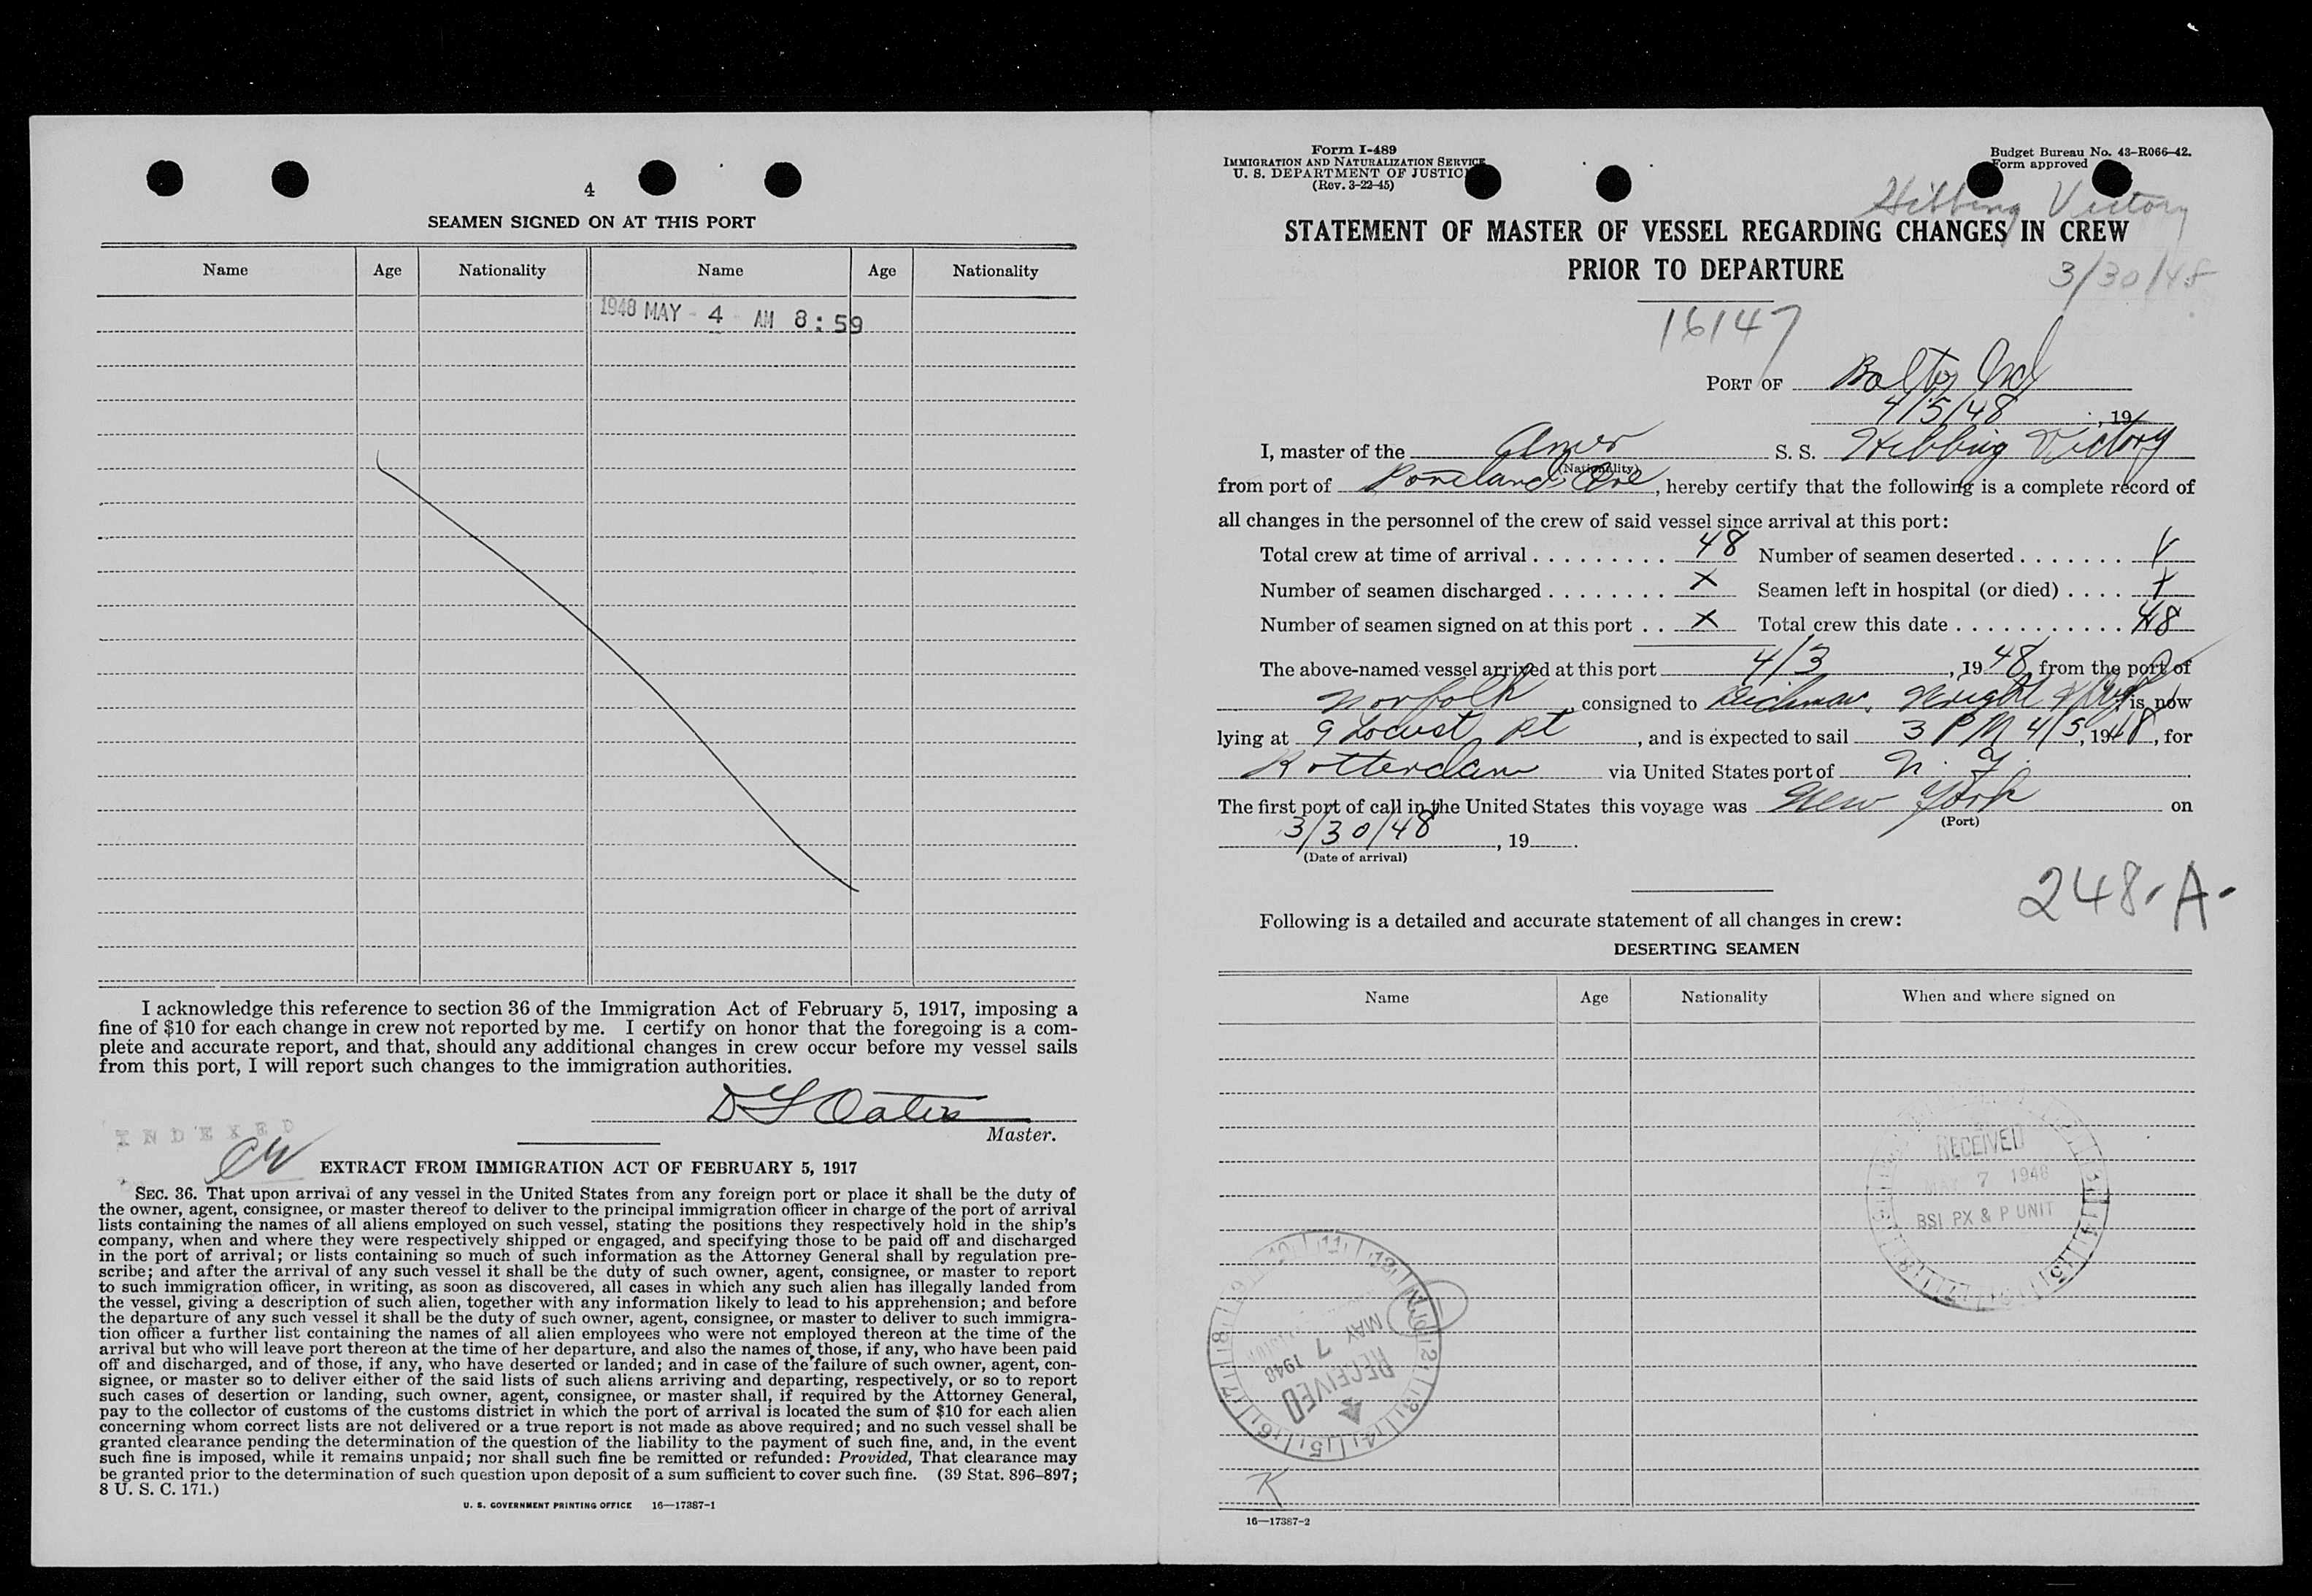 4
SEAMEN SIGNED ON AT THIS PORT
Name Age Nationality Name Age Nationality
1948 MAY - 4 AM 8:59
I acknowledge this reference to section 36 of the Immigration Act of February 5, 1917, imposing a
fine of $10 for each change in crew not reported by me. I certify on honor that the foregoing is a com-
plete and accurate report, and that, should any additional changes in crew occur before my vessel sails
from this port, I will report such changes to the immigration authorities.
D Oates
Master.
INDEXED
EXTRACT FROM IMMIGRATION ACT OF FEBRUARY 5, 1917
SEC. 36. That upon arrival of any vessel in the United States from any foreign port or place it shall be the duty of
the owner, agent, consignee, or master thereof to deliver to the principal immigration officer in charge of the port of arrival
lists containing the names of all aliens employed on such vessel, stating the positions they respectively hold in the ship's
company, when and where they were respectively shipped or engaged, and specifying those to be paid off and discharged
in the port of arrival; or lists containing so much of such information as the Attorney General shall by regulation pre-
scribe; and after the arrival of any such vessel it shall be the duty of such owner, agent, consignee, or master to report
to such immigration officer, in writing, as soon as discovered, all cases in which any such alien has illegally landed from
the vessel, giving a description of such alien, together with any information likely to lead to his apprehension; and before
the departure of any such vessel it shall be the duty of such owner, agent, consignee, or master to deliver to such immigra-
tion officer a further list containing the names of all alien employees who were not employed thereon at the time of the
arrival but who will leave port thereon at the time of her departure, and also the names of those, if any, who have been paid
off and discharged, and of those, if any, who have deserted or landed; and in case of the failure of such owner, agent, con-
signee, or master so to deliver either of the said lists of such aliens arriving and departing, respectively, or so to report
such cases of desertion or landing, such owner, agent, consignee, or master shall, if required by the Attorney General,
pay to the collector of customs of the customs district in which the port of arrival is located the sum of $10 for each alien
concerning whom correct lists are not delivered or a true report is not made as above required; and no such vessel shall be
granted clearance pending the determination of the question of the liability to the payment of such fine, and, in the event
such fine is imposed, while it remains unpaid; nor shall such fine be remitted or refunded: Provided, That clearance may
be granted prior to the determination of such question upon deposit of a sum sufficient to cover such fine. (39 Stat. 896–897;
8 U. S. C. 171.)
U. S. GOVERNMENT PRINTING OFFICE 16—17387-1
Form I-489
IMMIGRATION AND NATURALIZATION SERVICE
U. S. DEPARTMENT OF JUSTIC
(Rev. 3-22-45)
Budget Bureau No. 43-R066-42.
Form approved
Hibbing Victory
STATEMENT OF MASTER OF VESSEL REGARDING CHANGES IN CREW
PRIOR TO DEPARTURE
3/30/48
16147
PORT OF Balto Md
4/5/48, 19
I, master of the Amer S. S. Hibbing Victory
(Nationality)
from port of Portland, Ore, hereby certify that the following is a complete record of
all changes in the personnel of the crew of said vessel since arrival at this port:
Total crew at time of arrival 48 Number of seamen deserted X
Number of seamen discharged X Seamen left in hospital (or died) X
Number of seamen signed on at this port X Total crew this date 48
The above-named vessel arrived at this port 4/3, 1948, from the port of
Norfolk, consigned to Wright, is now
lying at 9 Locust Pt, and is expected to sail 3 PM 4/5, 1948, for
Rotterdam via United States port of N. Y.
The first port of call in the United States this voyage was New York on
(Port)
3/30/48, 19
(Date of arrival)
248-A-
Following is a detailed and accurate statement of all changes in crew:
DESERTING SEAMEN
Name Age Nationality When and where signed on
RECEIVED
MAY 7 1948
BSI PX & P UNIT
MAY 7 1948
RECEIVED
K
16—17387-2